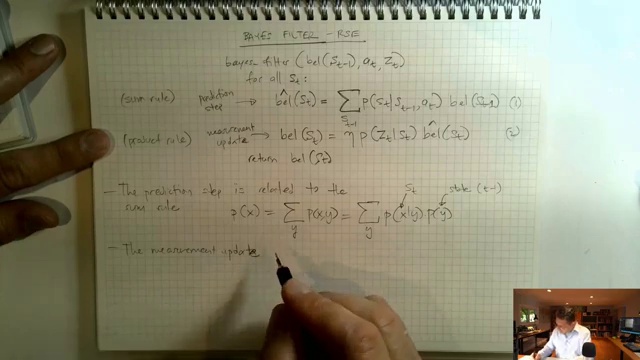 BAYES FILTER - RSE
bayes filter (bel(S_{t-1}), a_t, Z_t)
for all S_t:
(sum rule) prediction step → bel̂(S_t) = Σ_{S_{t-1}} p(S_t|S_{t-1}, a_t) bel(S_{t-1}) (1)
(product rule) measurement update → bel(S_t) = η p(Z_t|S_t) bel̂(S_t) (2)
return bel(S_t)
- The prediction step is related to the
sum rule
S_t state (t-1)
p(x) = Σ_y p(x,y) = Σ_y p(x|y) p(y)
- The measurement update